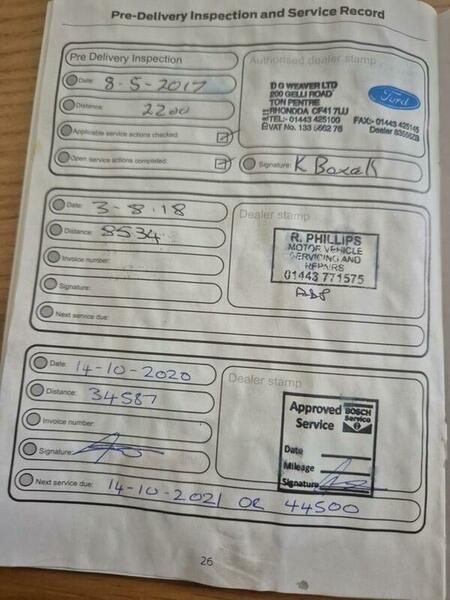 Pre-Delivery Inspection and Service Record
Pre Delivery Inspection
Date: 8-5-2017
Distance: 2200
Applicable service actions checked:
Open service actions completed:
Authorised dealer stamp
D G WEAVER LTD
200 GELLI ROAD
TON PENTRE
RHONDDA CF41 7LU
TEL:- 01443 425100 FAX:- 01443 425145
VAT No. 133 5662 76 Dealer
Ford
Signature: K Boxall
Date: 3-8-18
Distance: 8534
Invoice number:
Signature:
Next service due:
Dealer stamp
R. PHILLIPS
MOTOR VEHICLE
SERVICING AND
REPAIRS
01443 771575
Date: 14-10-2020
Distance: 34587
Invoice number:
Signature:
Next service due: 14-10-2021 OR 44500
Dealer stamp
Approved BOSCH
Service Service
Date
Mileage
Signature
26